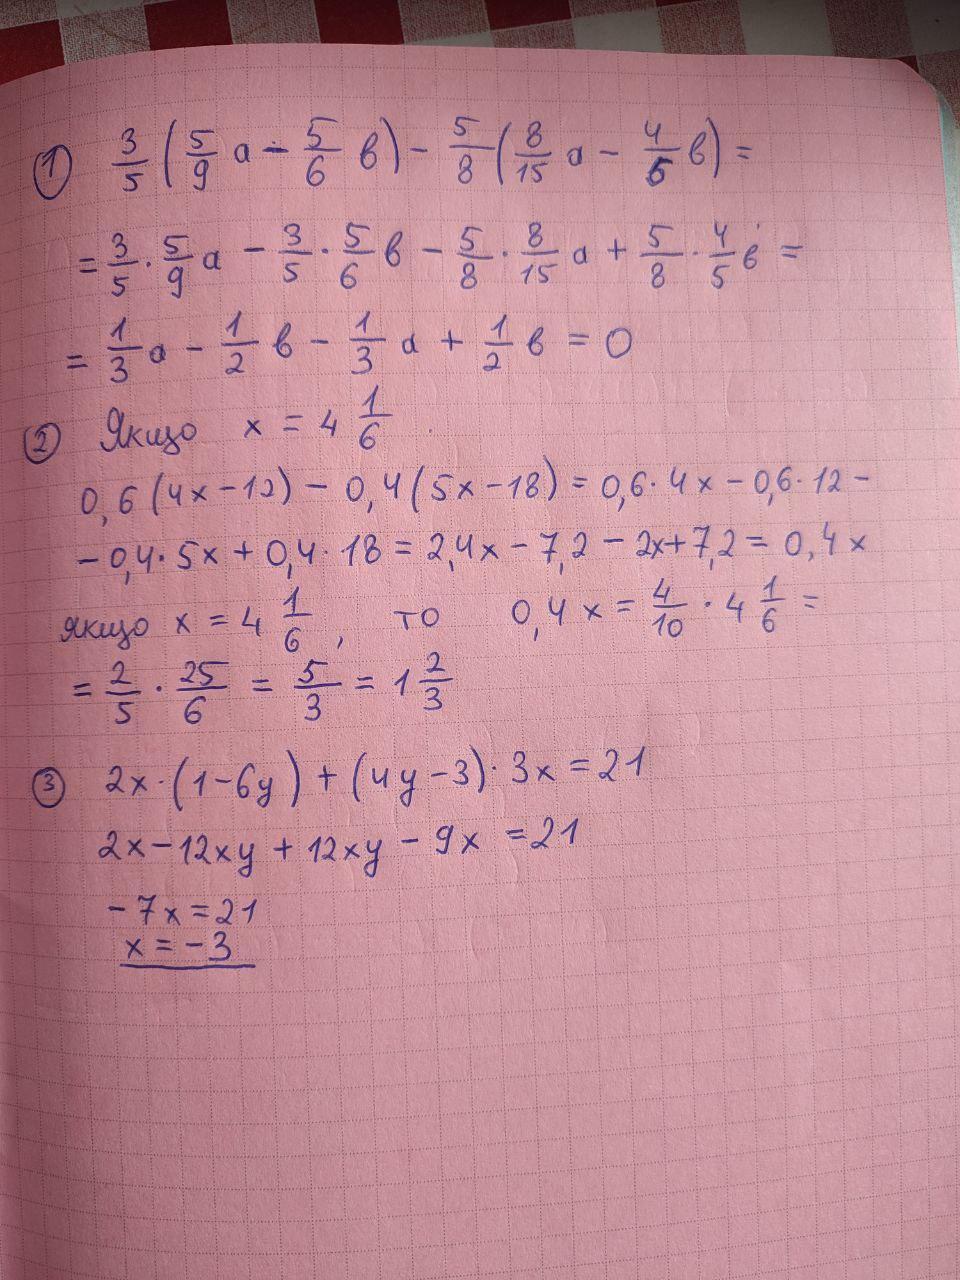 ① 3/5 (5/9 a - 5/6 в) - 5/8 (8/15 a - 4/5 в) =
= 3/5 · 5/9 a - 3/5 · 5/6 в - 5/8 · 8/15 a + 5/8 · 4/5 в =
= 1/3 a - 1/2 в - 1/3 a + 1/2 в = 0
② Якщо x = 4 1/6
0,6 (4x - 12) - 0,4 (5x - 18) = 0,6 · 4x - 0,6 · 12 -
- 0,4 · 5x + 0,4 · 18 = 2,4x - 7,2 - 2x + 7,2 = 0,4x
якщо x = 4 1/6, то 0,4x = 4/10 · 4 1/6 =
= 2/5 · 25/6 = 5/3 = 1 2/3
③ 2x · (1 - 6y) + (4y - 3) · 3x = 21
2x - 12xy + 12xy - 9x = 21
- 7x = 21
x = - 3